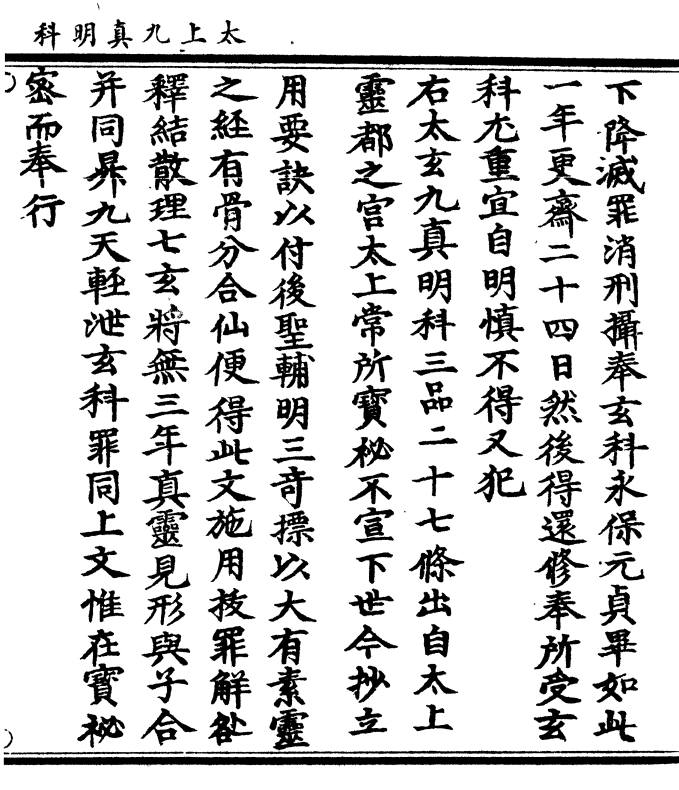 太上九真明科
下降滅罪消刑攝奉玄科永保元貞畢如此
一年更齋二十四日然後得還修奉所受玄
科尤重宜自明慎不得又犯
右太玄九真明科三品二十七條出自太上
靈都之宮太上常所寶祕不宣下世今抄立
用要訣以付後聖輔明三奇摽以大有素靈
之経有骨分合仙便得此文施用拔罪解咎
釋結散理七玄將無三年真靈見形與子合
并同昇九天輕泄玄科罪同上文惟在寶祕
密而奉行